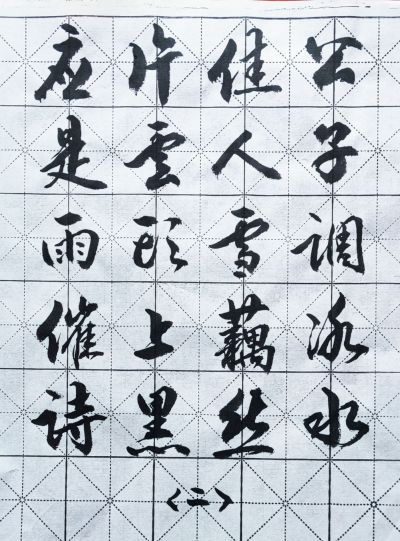 公子调冰水
佳人雪藕丝
片雲頭上黑
应是雨催诗
<二>